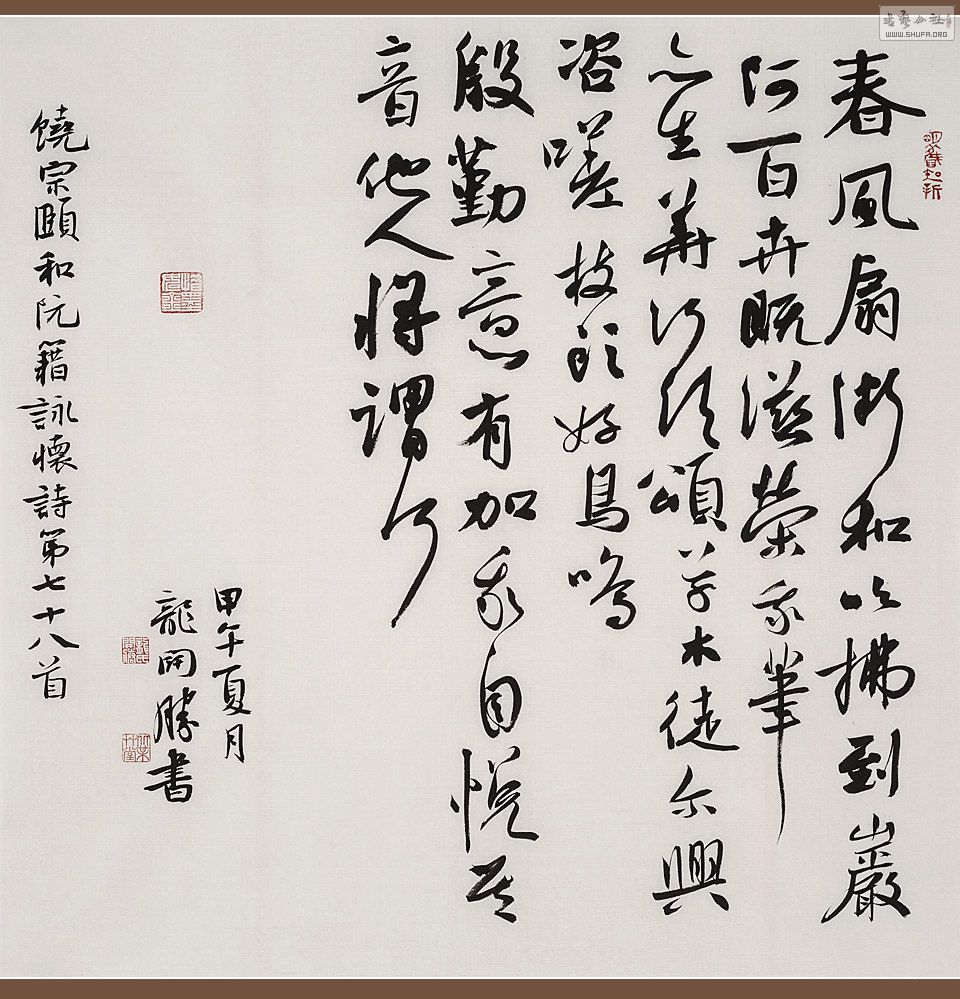 春風扇漸和吹拂到巖
阿百卉既滋榮我筆
亦生華何須頌草木徒尔興
咨嗟枝頭好鳥鳴
殷勤意有加我自悦其
音他人將謂何
甲午夏月
龍開勝書
饒宗頤和阮籍詠懷詩第七十八首
書藝公社
WWW.SHUFA.ORG